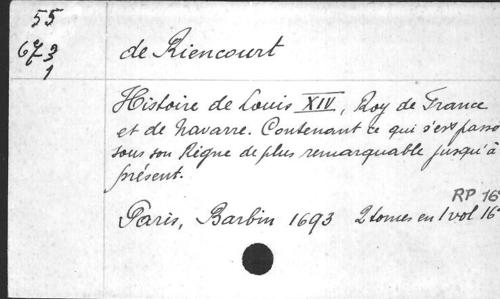 55
673
1
de Riencourt
Histoire de Louis XIV, Roy de France
et de Navarre. Contenant ce qui s'est passé
sous son Règne de plus remarquable jusqu'à
présent.
RP 16
Paris, Barbin 1693 2 tomes en 1 vol 16°